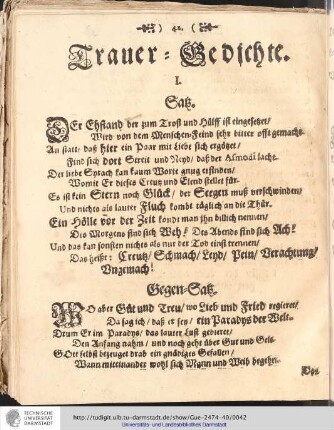 ) 42. (
Trauer-Gedichte.
I.
Satz.
DEr Ehstand der zum Trost und Hülff ist eingesetzet/
Wird von dem Menschen-Feind sehr bitter offt gemacht.
An statt/ daß hier ein Paar mit Liebe sich ergötzet/
Find sich dort Streit und Neyd/ daß der Asmodi lacht.
Der liebe Sprach kan kaum Worte gnug ersinden/
Womit Er dieses Creutz und Elend stellet für.
Es ist kein Stern noch Glück/ der Seegen muß verschwinden/
Und nichts als lauter Fluch kombt täglich an die Thür.
Ein Hölle vor der Zeit köndt man ihn billich nennen/
Des Morgens sind sich Weh! Des Abends sind sich Ach!
Und das kan sonsten nichts als nur der Tod einst trennen/
Das heißt: Creutz/ Schmach/ Leyd/ Pein/ Verachtung/
Ungemach!
Gegen-Satz.
WO aber Güt und Treu/ wo Lieb und Fried regieret/
Da sag ich/ daß er sey/ ein Paradys der Welt.
Drum Er im Paradys/ das lauter Lust gebieret/
Den Anfang nahm/ und noch geht über Gut und Geld.
GOtt selbst bezeuget drab ein gnädiges Gefallen/
Wann miteinander wohl sich Mann und Weib begehn.
TECHNISCHE
UNIVERSITÄT
DARMSTADT
http://tudigit.ulb.tu-darmstadt.de/show/Gue-2474-40/0042
Universitäts- und Landesbibliothek Darmstadt